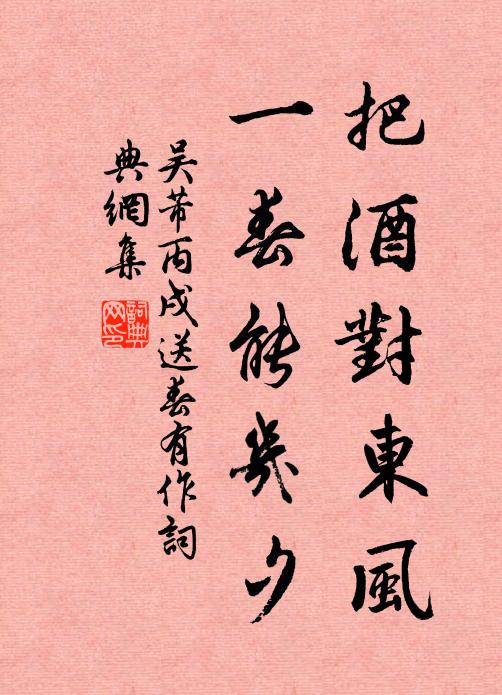 把酒對東風
一春能幾夕
吳芾丙戌送春有作詞
典網集
詞典網印